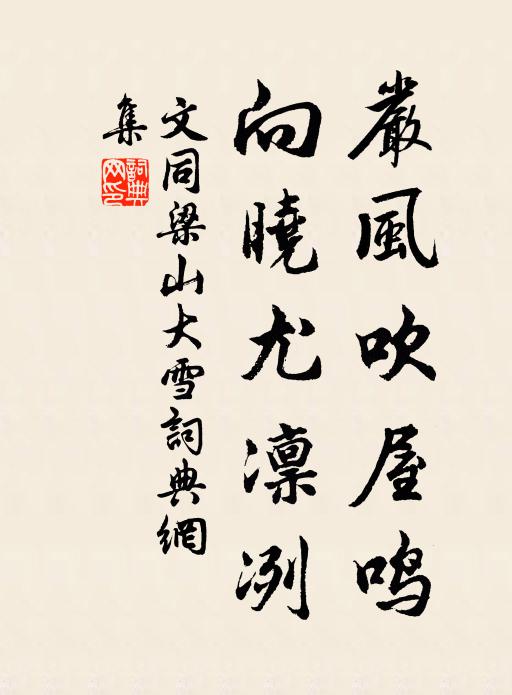 嚴風吹屋鳴
向曉尤凛冽
文同梁山大雪詞典網
集
詞典網印